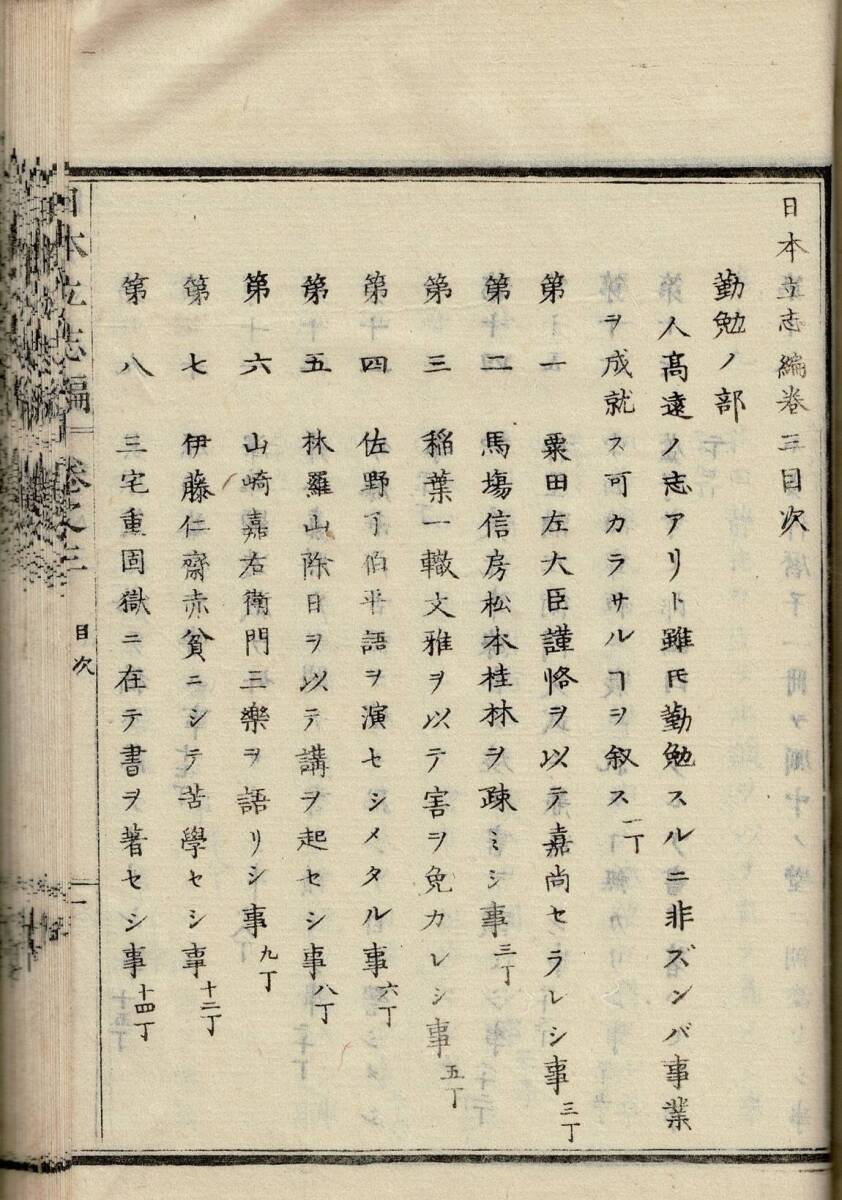 日本立志編卷三目次
勤勉ノ部
人高遠ノ志アリト雖𪜈勤勉スルニ非ズンバ事業
ヲ成就ス可カラサルヿヲ叙ス 一丁
第一 粟田左大臣謹恪ヲ以テ嘉尚セラレシ事 三丁
第二 馬塲信房松本桂林ヲ疎ミシ事 三丁
第三 稲葉一轍文雅ヲ以テ害ヲ免カレシ事 五丁
第四 佐野了伯平語ヲ演セシメタル事 六丁
第五 林羅山除日ヲ以テ講ヲ起セシ事 八丁
第六 山崎嘉右衛門三樂ヲ語リシ事 九丁
第七 伊藤仁齋赤貧ニシテ苦學セシ事 十二丁
第八 三宅重固獄ニ在テ書ヲ著セシ事 十四丁
日本立志編 卷之三 目次 一